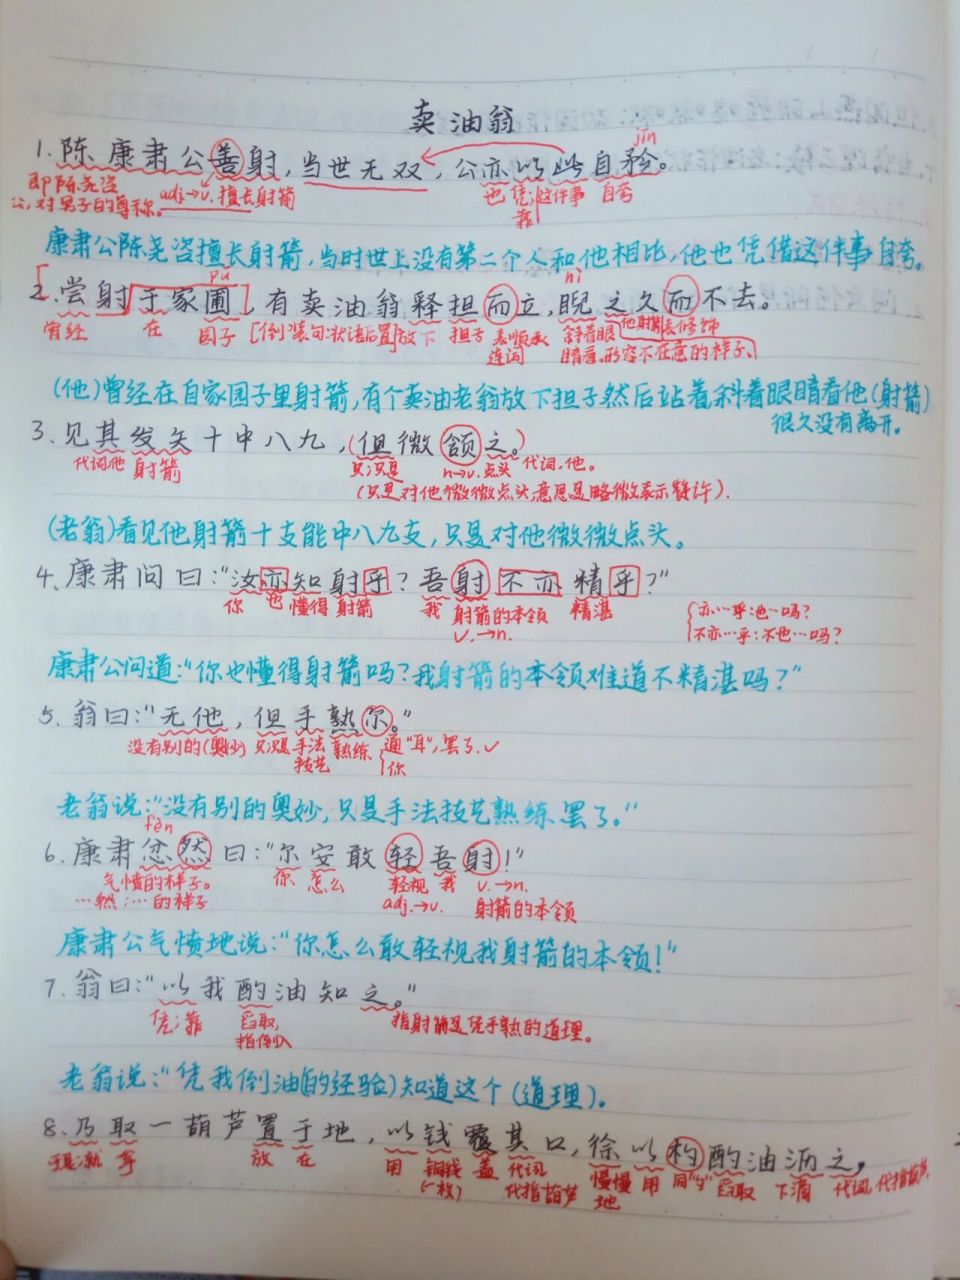 卖油翁
jīn
1.陈康肃公善射,当世无双,公亦以此自矜。
即陈尧咨 adj→v.擅长射箭 也 凭 这件事 自夸
公,对男子的尊称。 靠
康肃公陈尧咨擅长射箭,当时世上没有第二个人和他相比,他也凭借这件事自夸。
pǔ nì
2.尝射于家圃,有卖油翁释担而立,睨之久而不去。
曾经 在 园子 [倒装句:状语后置]放下 担子 表顺承 斜着眼 他射箭 表修饰
连词 睛看,形容不在意的样子。
(他)曾经在自家园子里射箭,有个卖油老翁放下担子然后站着,斜着眼睛看他(射箭)
很久没有离开。
3.见其发矢十中八九,(但微颔之。)
代词,他 射箭 只,只是 n→v.点头 代词,他。
(只是对他微微点头,意思是略微表示赞许).
(老翁)看见他射箭十支能中八九支,只是对他微微点头。
4、康肃问曰:“汝亦知射乎?吾射不亦精乎?”
你 也 懂得 射箭 我 射箭的本领 精湛 亦…乎:也…吗?
v.→n. 不亦…乎:不也…吗?
康肃公问道:“你也懂得射箭吗?我射箭的本领难道不精湛吗?”
5、翁曰:“无他,但手熟尔。”
没有别的(奥妙) 只,只是 手法 熟练 通“耳”,罢了.✓
技艺 你
老翁说:“没有别的奥妙,只是手法技艺熟练罢了。”
fèn
6、康肃忿然曰:“尔安敢轻吾射!”
气愤的样子。 你 怎么 轻视 我 v.→n.
…然:…的样子 adj.→v. 射箭的本领
康肃公气愤地说:“你怎么敢轻视我射箭的本领!”
7、翁曰:“以我酌油知之。”
凭,靠 舀取, 指射箭是凭手熟的道理。
指倒入
老翁说:“凭我倒油(的经验)知道这个(道理).
8、乃取一葫芦置于地,以钱覆其口,徐以杓酌油沥之,
于是,就 拿 放 在 用 铜钱 盖 代词 慢慢 用 同“勺” 舀取 下滴 代词,代指葫芦,
(一枚) 代指葫芦 地